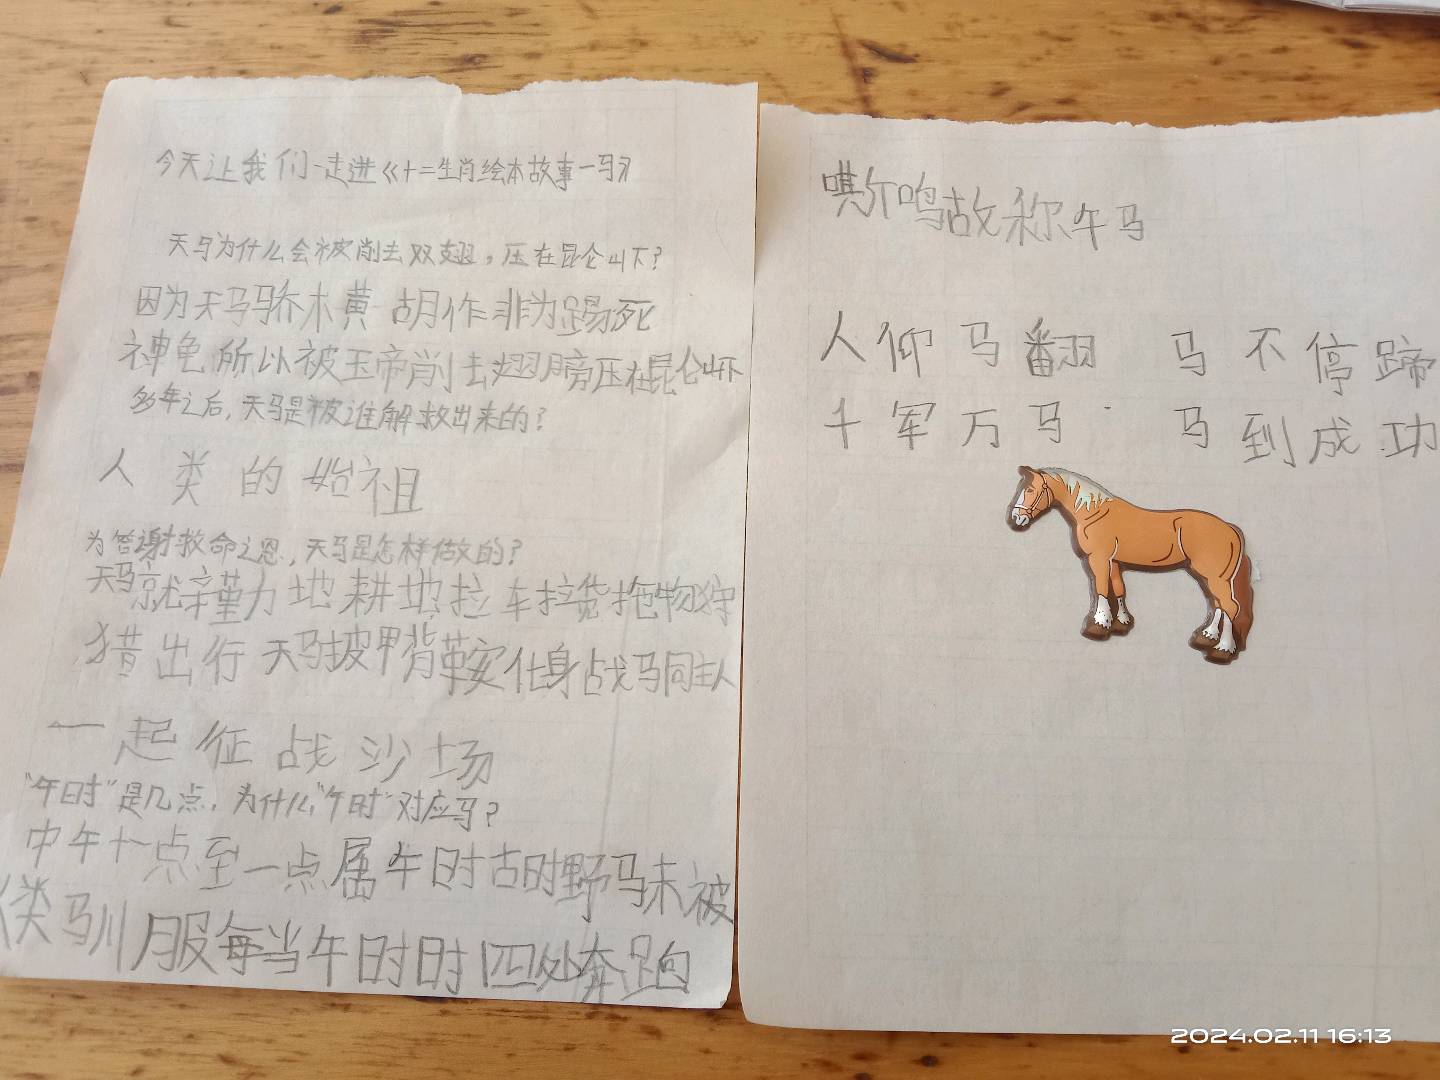 今天让我们一走进《十二生肖绘本故事一马》
天马为什么会被削去双翅，压在昆仑山下？
因为天马骄木黄胡作非为踢死
神龟所以被玉帝削去翅膀压在昆仑山下
多年之后，天马是被谁解救出来的？
人类的始祖
为答谢救命之恩，天马是怎样做的？
天马就辛勤力地耕地拉车拉货拖物狩
猎出行天马披甲背鞍化身战马同主人
一起征战沙场
"午时"是几点，为什么"午时"对应马？
中午十一点至一点属午时古时野马未被
人类驯服每当午时时四处奔跑
嘶鸣故称午马
人仰马翻 马不停蹄
千军万马 马到成功
2024.02.11 16:13